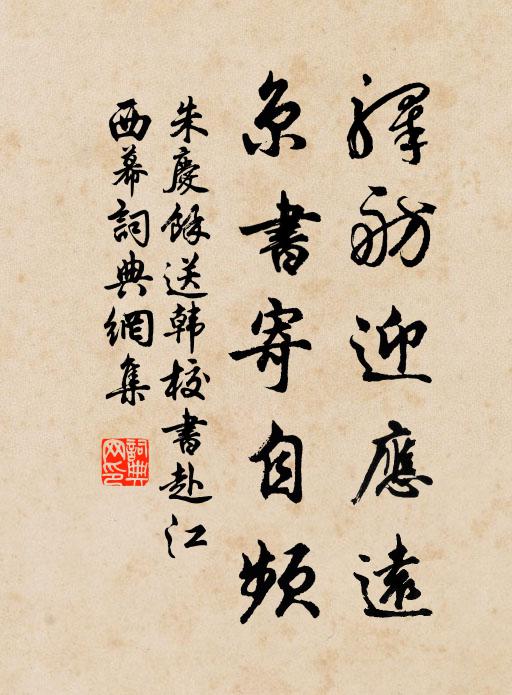 驛舫迎應遠
京書寄自頻
朱慶餘送韓校書赴江
西幕詞典網集
詞典網印